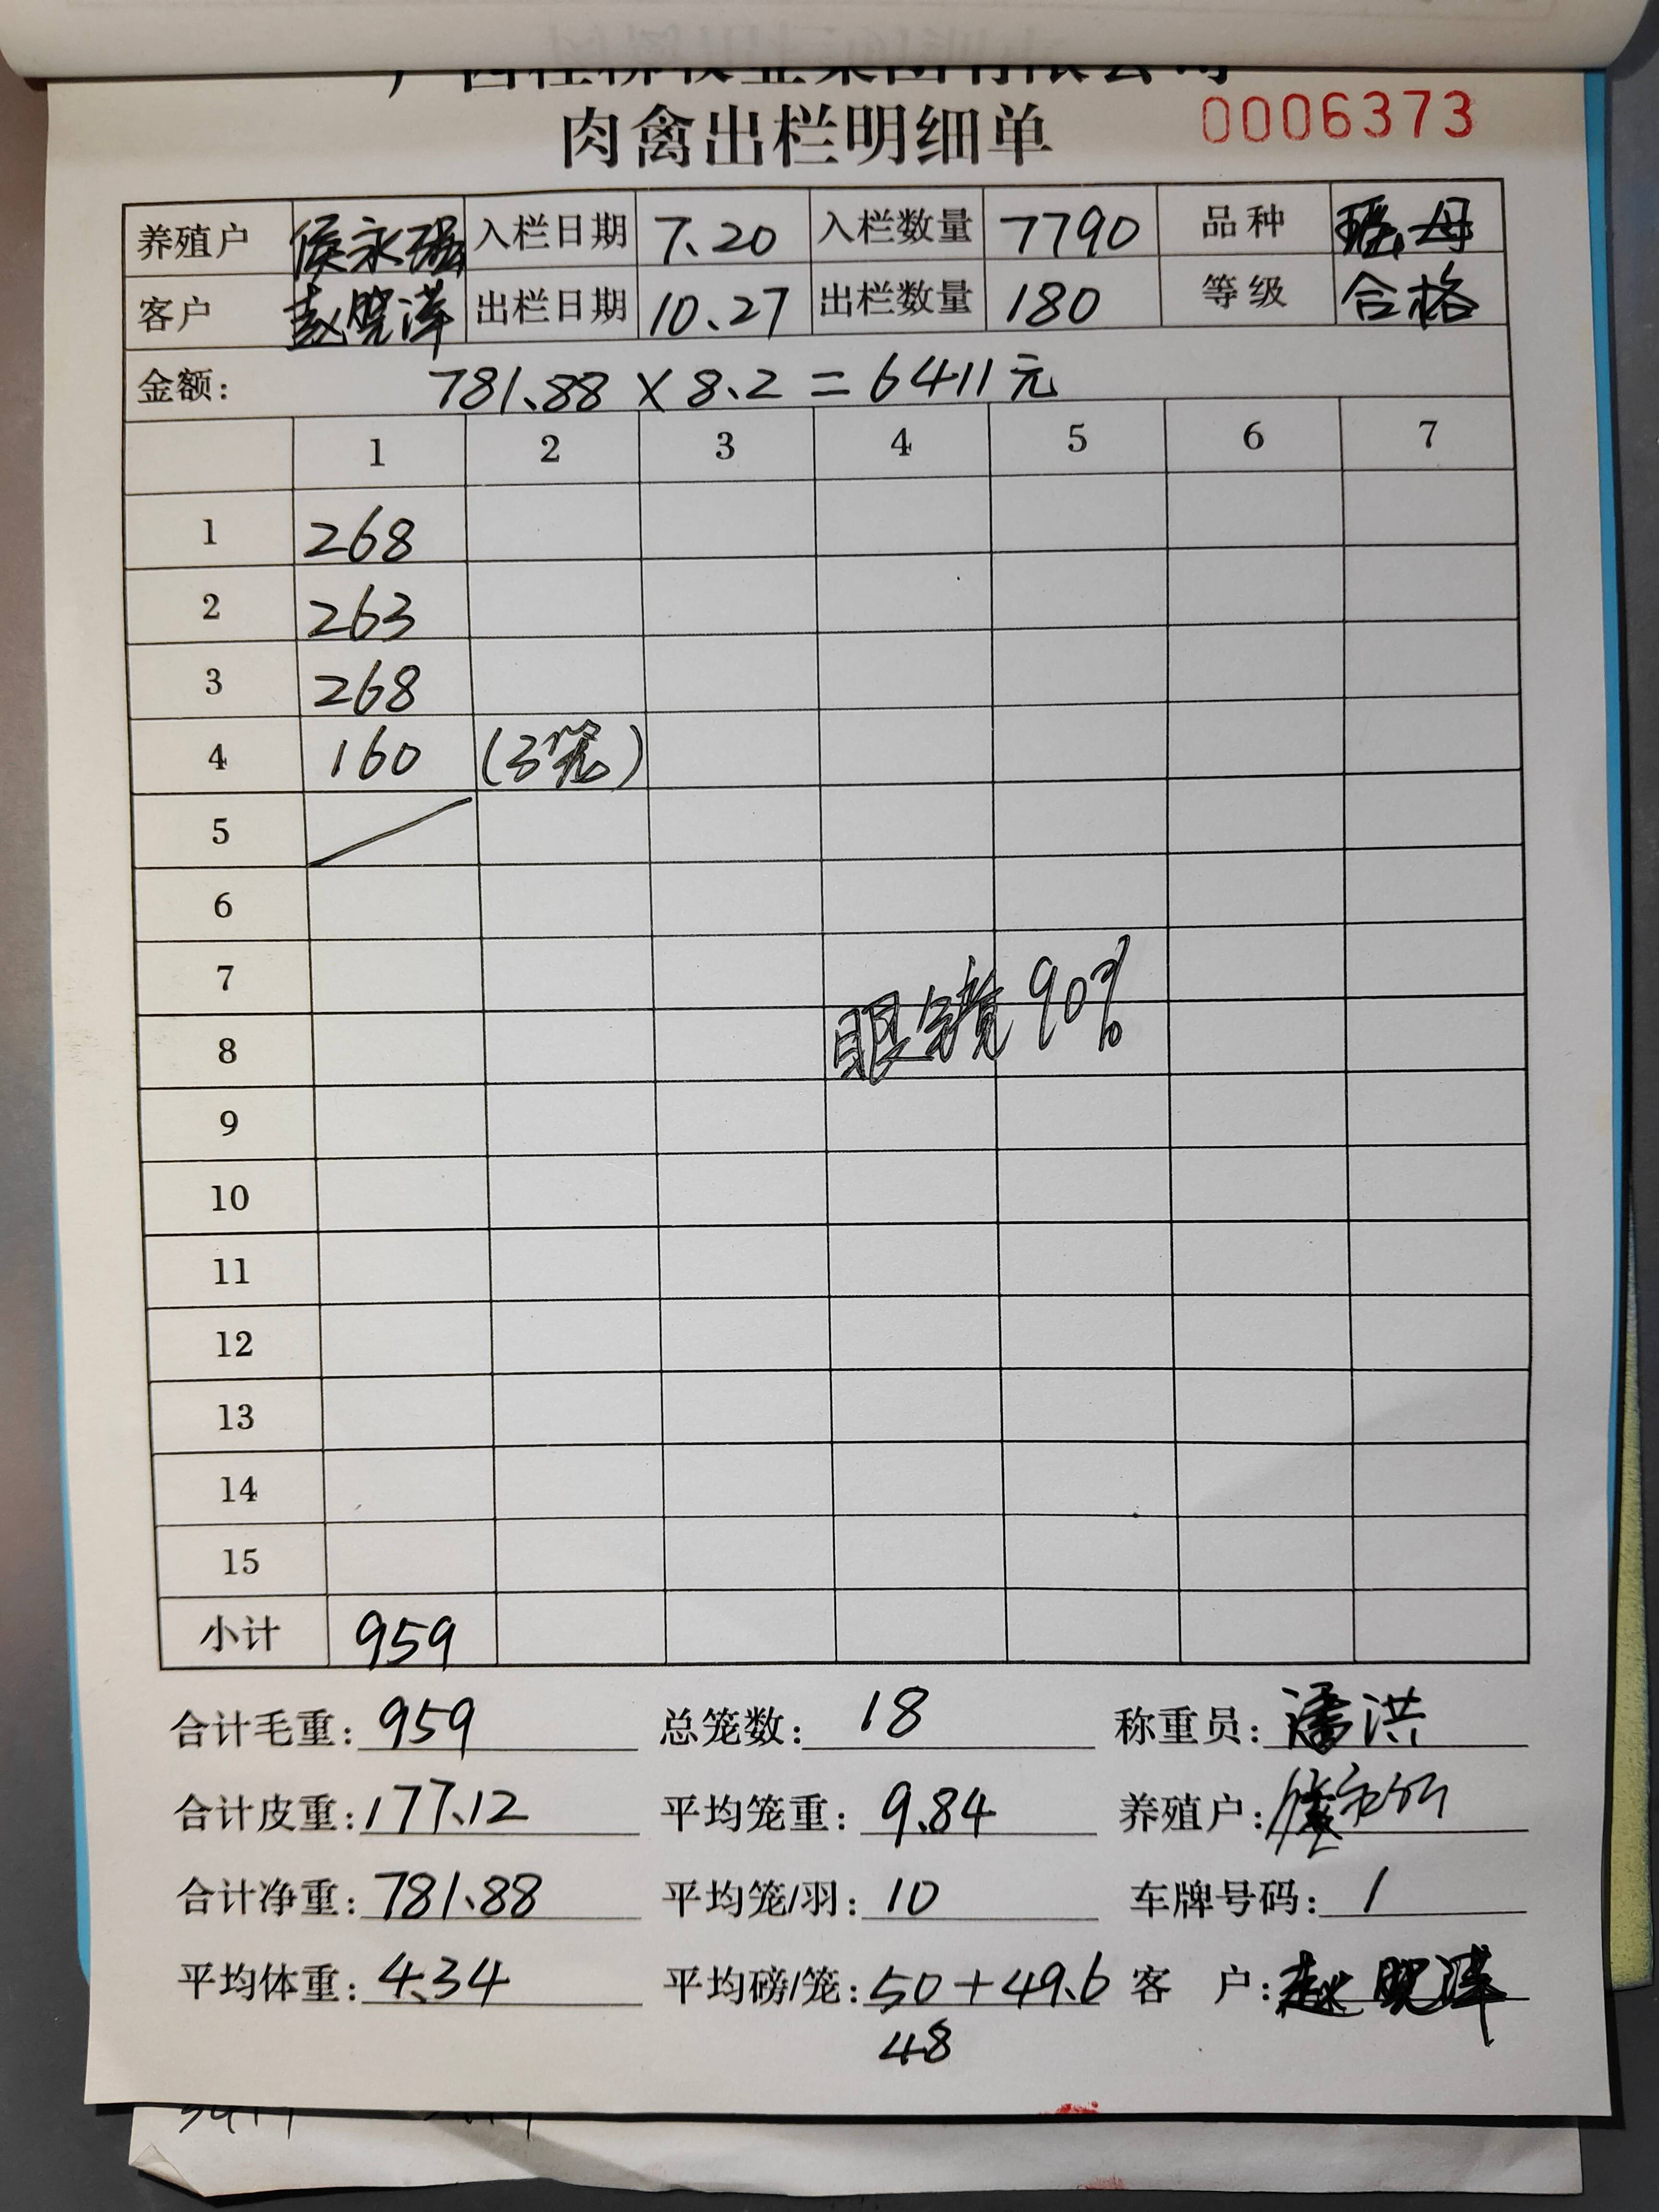 肉禽出栏明细单 0006373
养殖户 侯永强 入栏日期 7.20 入栏数量 7790 品种 母
客户 赵晓泽 出栏日期 10.27 出栏数量 180 等级 合格
金额: 781.88 × 8.2 = 6411元
1 2 3 4 5 6 7
1 268
2 263
3 268
4 160 (3笼)
5
6
7
眼镜90%
8
9
10
11
12
13
14
15
小计 959
合计毛重: 959 总笼数: 18 称重员: 潘洪
合计皮重: 177.12 平均笼重: 9.84 养殖户:
合计净重: 781.88 平均笼/羽: 10 车牌号码: 1
平均体重: 4.34 平均磅/笼: 50+49.6 客 户: 赵晓泽
48